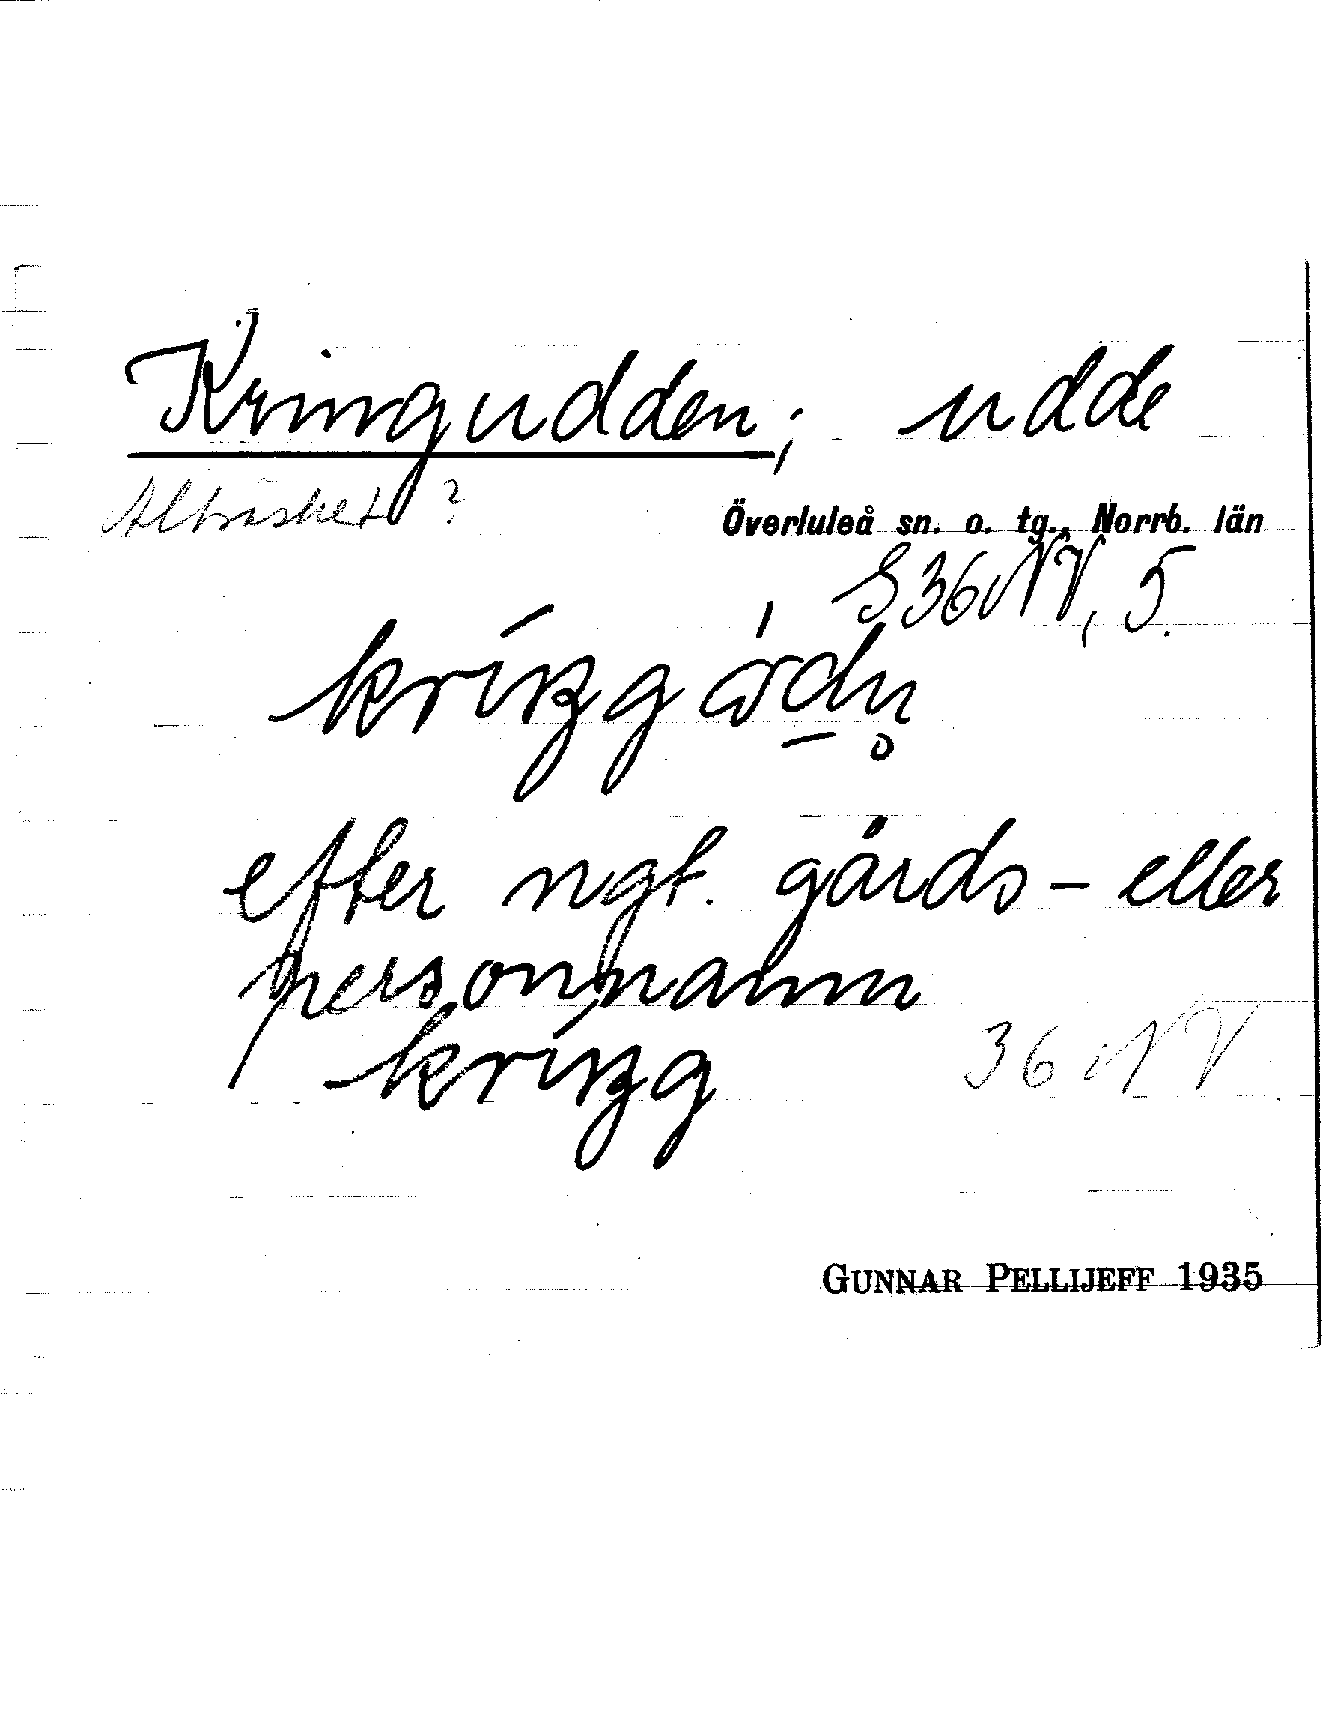 Kringudden; udde
Alträsket?
Överluleå sn. o. tg., Norrb. län
S36NV, 5.
efter ngt. gårds- eller
personnamn
36 NV
GUNNAR PELLIJEFF 1935